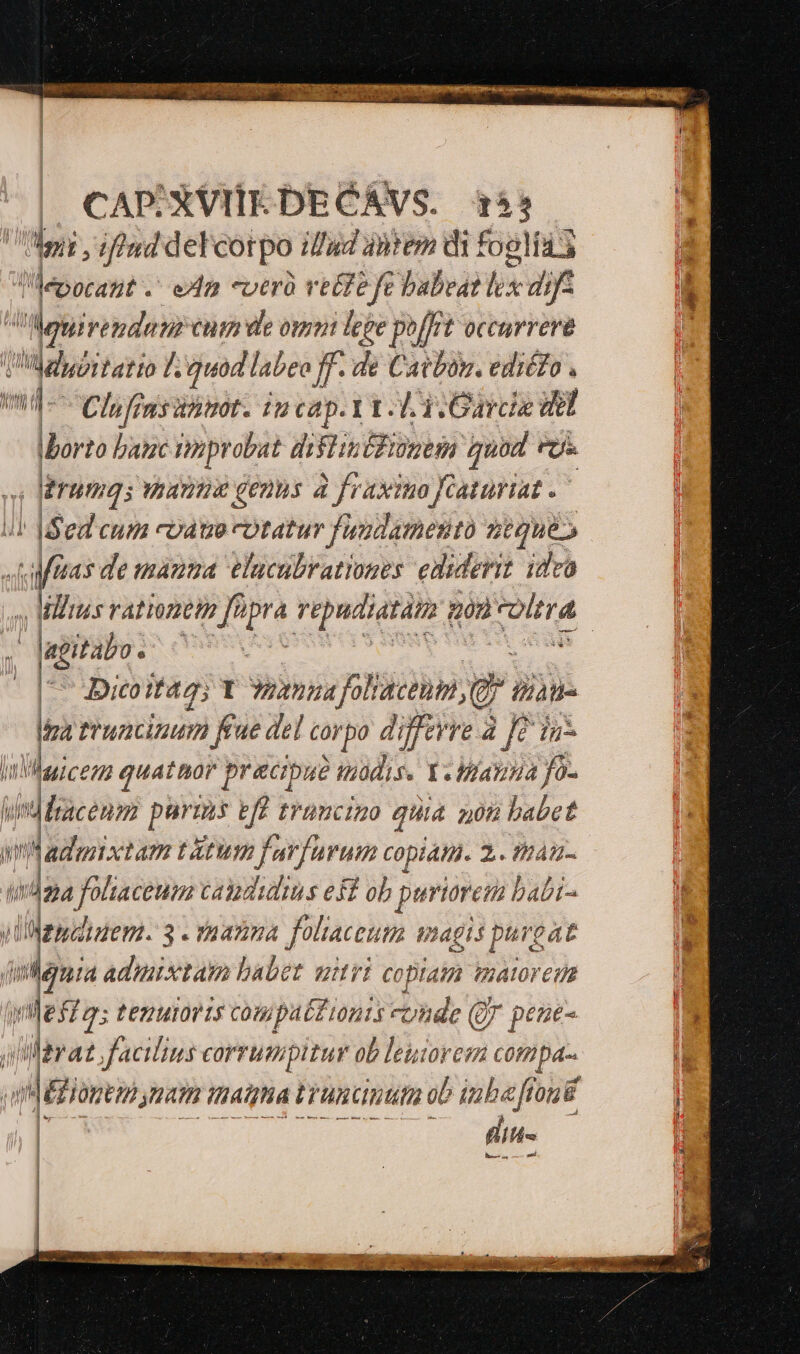 CAP. XVIII. DE CAVS. 153
ni, istud del corpo illud autem di foglia
vocant. An vero recte se habeat lex dif-
quirendum cum de omni lege possit occurrere
dubitatio l. quod labeo ff. de Carbon. edicto.
Clusius annot. in cap. 11. l. 1. Garciæ del
horto hanc improbat distinctionem quod v-
trumq; mannæ genus à fraxino scaturiat.
Sed cum vano votatur fundamento neque
suas de manna elucubrationes ediderit ideo
illius rationem supra repudiatam non vltra
agitabo.
Dico itaq; 1 manna foliaceum, & man-
na truncinum siue del corpo differre à se in-
uicem quatuor præcipuè modis. 1. manna fo-
liaceum purius est truncino quia non habet
admixtam tātum furfurum copiam. 2. man-
na foliaceum candidius est ob puriorem habi-
tudinem. 3. manna foliaceum magis purgat
quia admixtam habet nitri copiam maiorem
estq; tenuioris compactionis vnde & pene-
trat, facilius corrumpitur ob leuiorem compa-
ctionem, nam manna truncinum ob inhæsionē
diu-